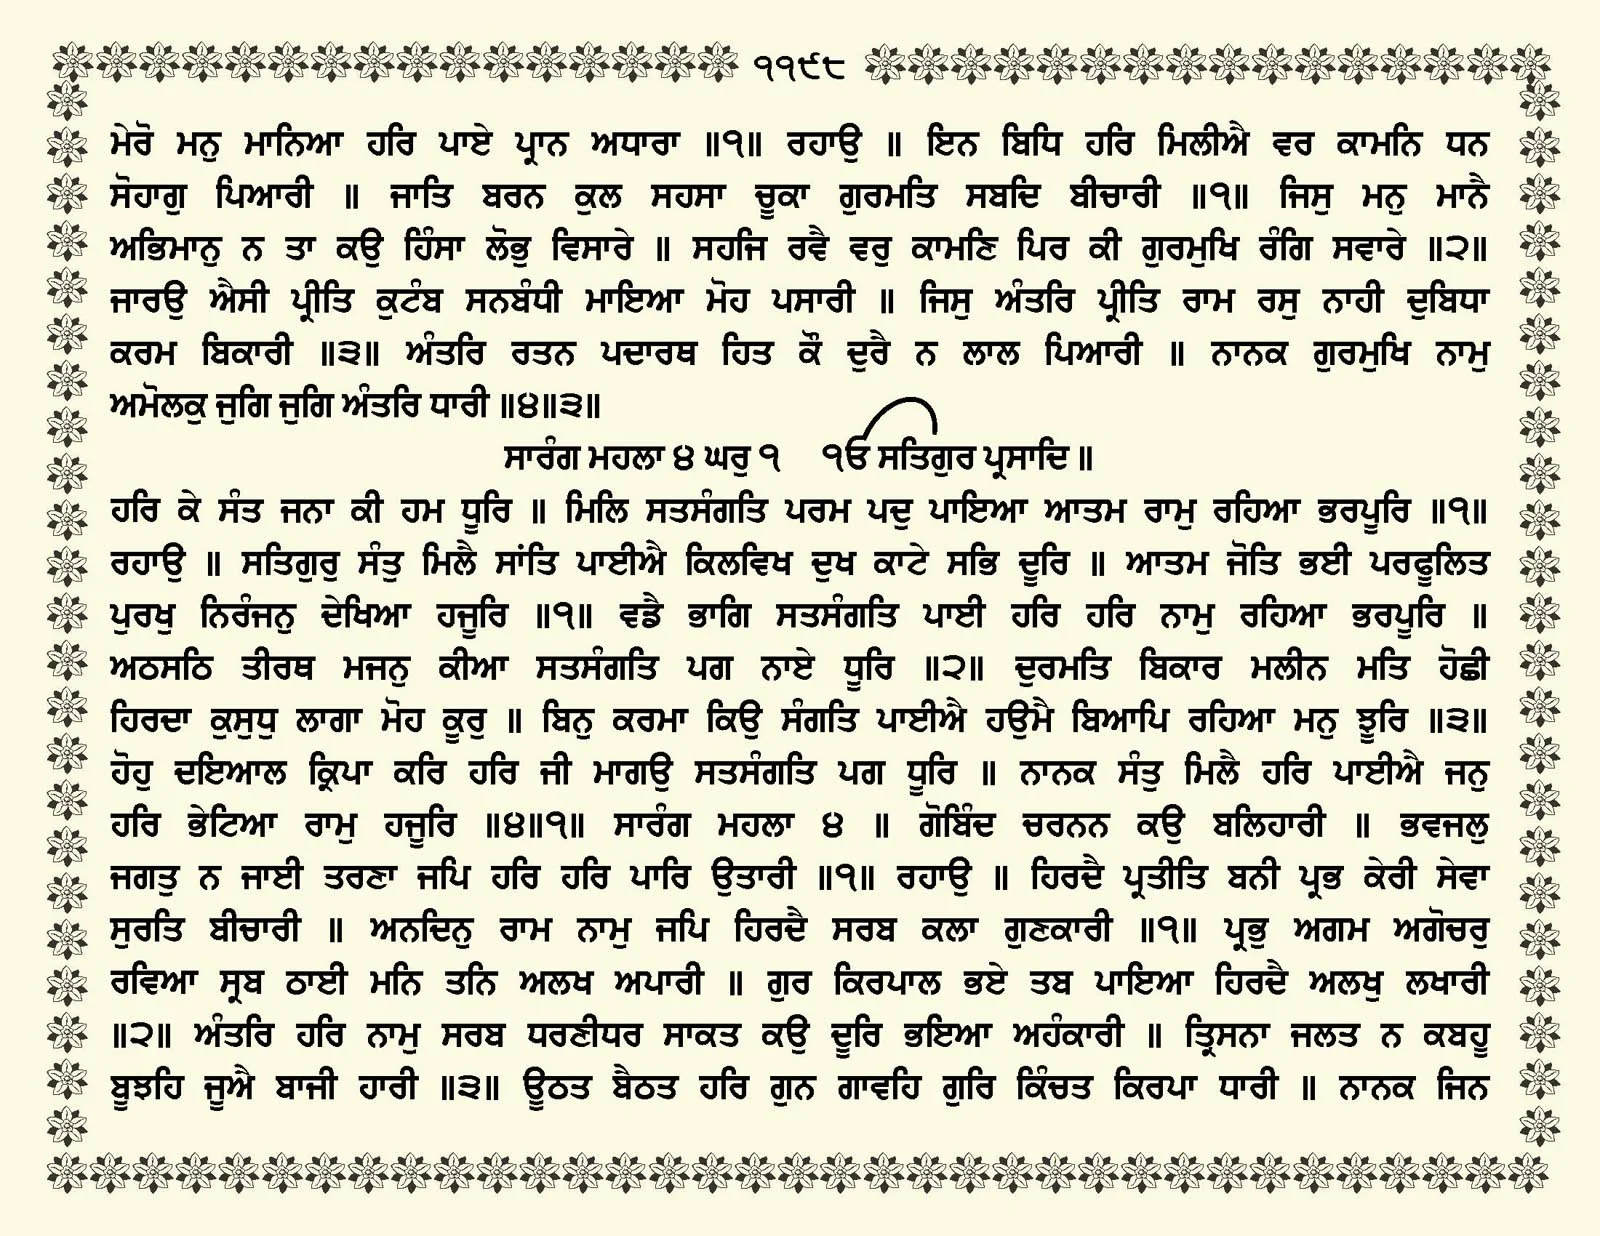 ੧੧੯੮
ਮੇਰੋ ਮਨੁ ਮਾਨਿਆ ਹਰਿ ਪਾਏ ਪ੍ਰਾਨ ਅਧਾਰਾ ॥੧॥ ਰਹਾਉ ॥ ਇਨ ਬਿਧਿ ਹਰਿ ਮਿਲੀਐ ਵਰ ਕਾਮਨਿ ਧਨ
ਸੋਹਾਗੁ ਪਿਆਰੀ ॥ ਜਾਤਿ ਬਰਨ ਕੁਲ ਸਹਸਾ ਚੂਕਾ ਗੁਰਮਤਿ ਸਬਦਿ ਬੀਚਾਰੀ ॥੧॥ ਜਿਸੁ ਮਨੁ ਮਾਨੈ
ਅਭਿਮਾਨੁ ਨ ਤਾ ਕਉ ਹਿੰਸਾ ਲੋਭੁ ਵਿਸਾਰੇ ॥ ਸਹਜਿ ਰਵੈ ਵਰੁ ਕਾਮਣਿ ਪਿਰ ਕੀ ਗੁਰਮੁਖਿ ਰੰਗਿ ਸਵਾਰੇ ॥੨॥
ਜਾਰਉ ਐਸੀ ਪ੍ਰੀਤਿ ਕੁਟੰਬ ਸਨਬੰਧੀ ਮਾਇਆ ਮੋਹ ਪਸਾਰੀ ॥ ਜਿਸੁ ਅੰਤਰਿ ਪ੍ਰੀਤਿ ਰਾਮ ਰਸੁ ਨਾਹੀ ਦੁਬਿਧਾ
ਕਰਮ ਬਿਕਾਰੀ ॥੩॥ ਅੰਤਰਿ ਰਤਨ ਪਦਾਰਥ ਹਿਤ ਕੌ ਦੁਰੈ ਨ ਲਾਲ ਪਿਆਰੀ ॥ ਨਾਨਕ ਗੁਰਮੁਖਿ ਨਾਮੁ
ਅਮੋਲਕੁ ਜੁਗਿ ਜੁਗਿ ਅੰਤਰਿ ਧਾਰੀ ॥੪॥੩॥
ਸਾਰੰਗ ਮਹਲਾ ੪ ਘਰੁ ੧ ੴ ਸਤਿਗੁਰ ਪ੍ਰਸਾਦਿ ॥
ਹਰਿ ਕੇ ਸੰਤ ਜਨਾ ਕੀ ਹਮ ਧੂਰਿ ॥ ਮਿਲਿ ਸਤਸੰਗਤਿ ਪਰਮ ਪਦੁ ਪਾਇਆ ਆਤਮ ਰਾਮੁ ਰਹਿਆ ਭਰਪੂਰਿ ॥੧॥
ਰਹਾਉ ॥ ਸਤਿਗੁਰੁ ਸੰਤੁ ਮਿਲੈ ਸਾਂਤਿ ਪਾਈਐ ਕਿਲਵਿਖ ਦੁਖ ਕਾਟੇ ਸਭਿ ਦੂਰਿ ॥ ਆਤਮ ਜੋਤਿ ਭਈ ਪਰਫੂਲਿਤ
ਪੁਰਖੁ ਨਿਰੰਜਨੁ ਦੇਖਿਆ ਹਜੂਰਿ ॥੧॥ ਵਡੈ ਭਾਗਿ ਸਤਸੰਗਤਿ ਪਾਈ ਹਰਿ ਹਰਿ ਨਾਮੁ ਰਹਿਆ ਭਰਪੂਰਿ ॥
ਅਠਸਠਿ ਤੀਰਥ ਮਜਨੁ ਕੀਆ ਸਤਸੰਗਤਿ ਪਗ ਨਾਏ ਧੂਰਿ ॥੨॥ ਦੁਰਮਤਿ ਬਿਕਾਰ ਮਲੀਨ ਮਤਿ ਹੋਛੀ
ਹਿਰਦਾ ਕੁਸੁਧੁ ਲਾਗਾ ਮੋਹ ਕੂਰੁ ॥ ਬਿਨੁ ਕਰਮਾ ਕਿਉ ਸੰਗਤਿ ਪਾਈਐ ਹਉਮੈ ਬਿਆਪਿ ਰਹਿਆ ਮਨੁ ਝੂਰਿ ॥੩॥
ਹੋਹੁ ਦਇਆਲ ਕ੍ਰਿਪਾ ਕਰਿ ਹਰਿ ਜੀ ਮਾਗਉ ਸਤਸੰਗਤਿ ਪਗ ਧੂਰਿ ॥ ਨਾਨਕ ਸੰਤੁ ਮਿਲੈ ਹਰਿ ਪਾਈਐ ਜਨੁ
ਹਰਿ ਭੇਟਿਆ ਰਾਮੁ ਹਜੂਰਿ ॥੪॥੧॥ ਸਾਰੰਗ ਮਹਲਾ ੪ ॥ ਗੋਬਿੰਦ ਚਰਨਨ ਕਉ ਬਲਿਹਾਰੀ ॥ ਭਵਜਲੁ
ਜਗਤੁ ਨ ਜਾਈ ਤਰਣਾ ਜਪਿ ਹਰਿ ਹਰਿ ਪਾਰਿ ਉਤਾਰੀ ॥੧॥ ਰਹਾਉ ॥ ਹਿਰਦੈ ਪ੍ਰਤੀਤਿ ਬਨੀ ਪ੍ਰਭ ਕੇਰੀ ਸੇਵਾ
ਸੁਰਤਿ ਬੀਚਾਰੀ ॥ ਅਨਦਿਨੁ ਰਾਮ ਨਾਮੁ ਜਪਿ ਹਿਰਦੈ ਸਰਬ ਕਲਾ ਗੁਣਕਾਰੀ ॥੧॥ ਪ੍ਰਭੁ ਅਗਮ ਅਗੋਚਰੁ
ਰਵਿਆ ਸ੍ਰਬ ਠਾਈ ਮਨਿ ਤਨਿ ਅਲਖ ਅਪਾਰੀ ॥ ਗੁਰ ਕਿਰਪਾਲ ਭਏ ਤਬ ਪਾਇਆ ਹਿਰਦੈ ਅਲਖੁ ਲਖਾਰੀ
॥੨॥ ਅੰਤਰਿ ਹਰਿ ਨਾਮੁ ਸਰਬ ਧਰਣੀਧਰ ਸਾਕਤ ਕਉ ਦੂਰਿ ਭਇਆ ਅਹੰਕਾਰੀ ॥ ਤ੍ਰਿਸਨਾ ਜਲਤ ਨ ਕਬਹੂ
ਬੂਝਹਿ ਜੂਐ ਬਾਜੀ ਹਾਰੀ ॥੩॥ ਊਠਤ ਬੈਠਤ ਹਰਿ ਗੁਨ ਗਾਵਹਿ ਗੁਰਿ ਕਿੰਚਤ ਕਿਰਪਾ ਧਾਰੀ ॥ ਨਾਨਕ ਜਿਨ